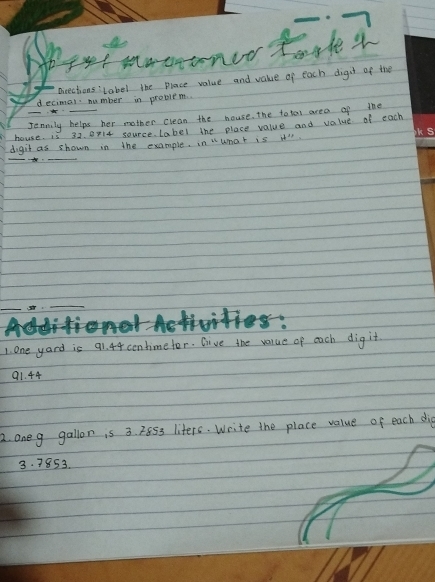 Directions: Label the Place value and value of each digit of the
decimal number in problem.
Jennily helps her mother clean the house. The total area of the
house. is 32.8714 source. Label the place value and value of each
digit as shown in the example. in "what is it".
Additional Activities:
1. One yard is 91.44 centimeter. Give the value of each digit.
91.44
2. One g gallon is 3.7853 liters. Write the place value of each dig
3.7853.